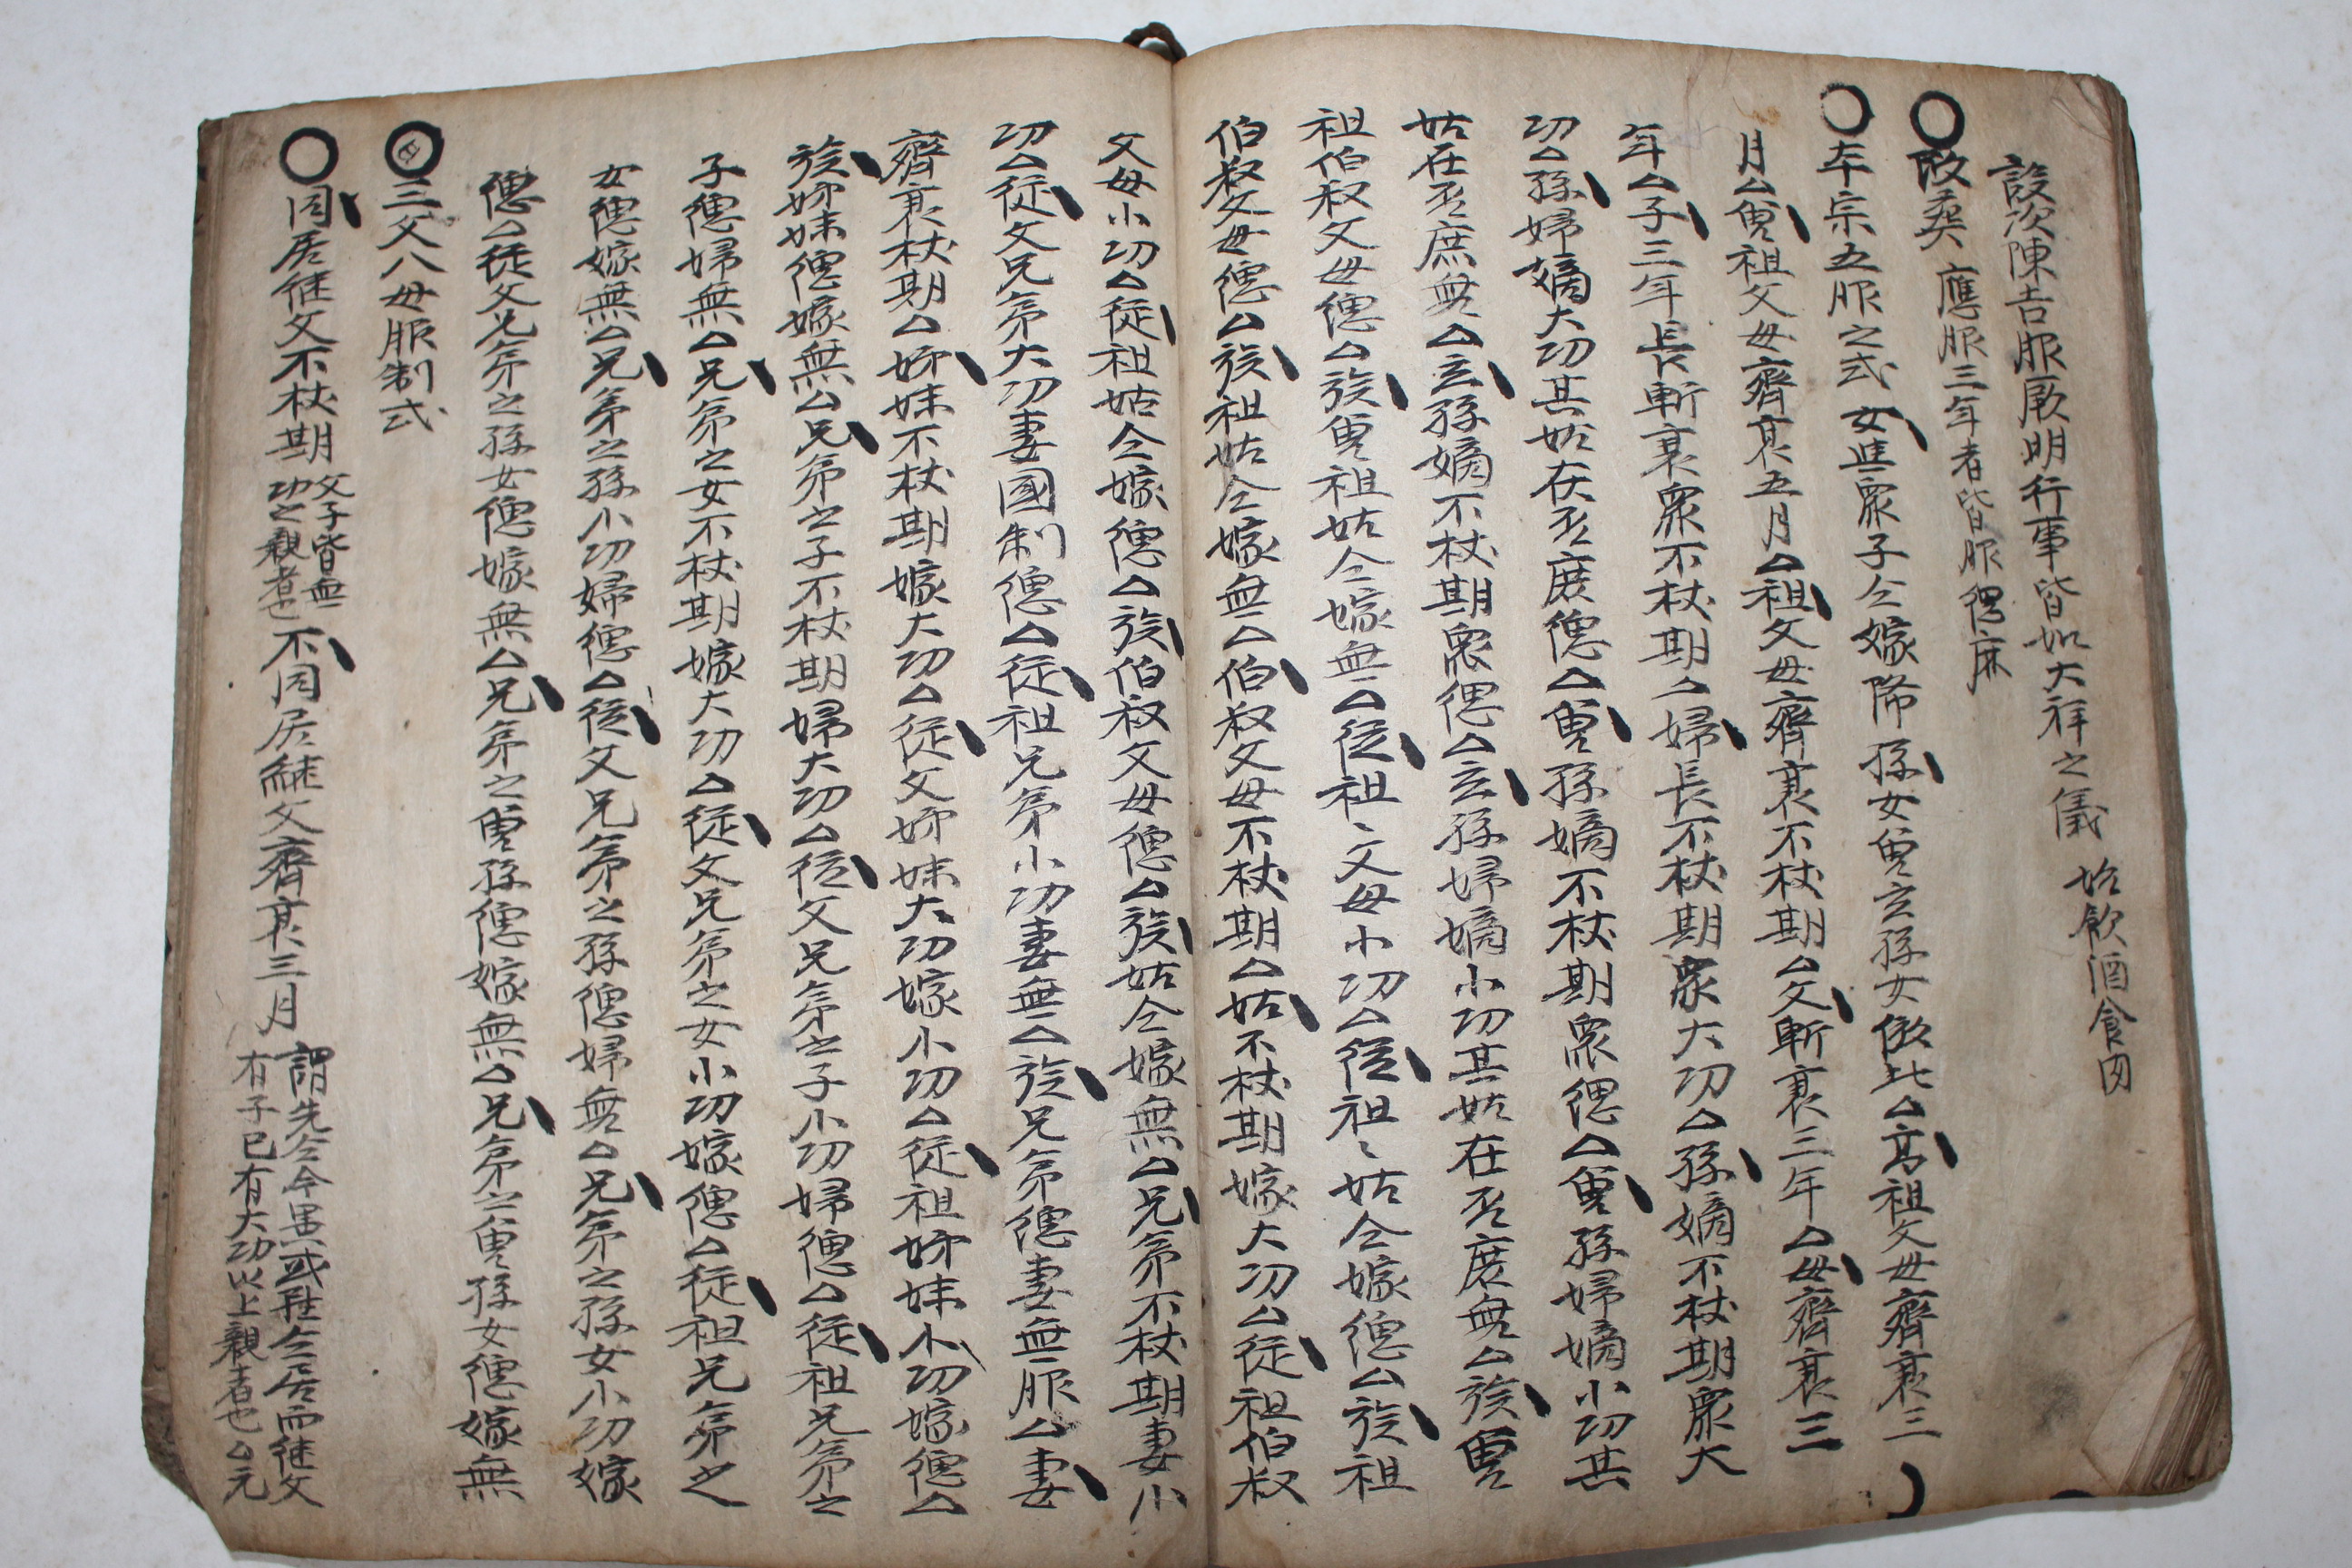 設次陳吉服厥明行事皆如大祥之儀 始飮酒食肉
○改葬 應服三年者皆服緦麻
○本宗五服之式 女衆子仝嫁降孫女曾玄孫女倣此△高祖父母齊衰三
月△曾祖父母齊衰五月△祖父母齊衰不杖期△父斬衰三年△母齊衰三
年△子三年長斬衰衆不杖期△婦長不杖期衆大功△孫嫡不杖期衆大
功△孫婦嫡大功其姑在否庶緦△曾孫嫡不杖期衆緦△曾孫婦嫡小功其
姑在否庶無△玄孫嫡不杖期衆緦△玄孫婦嫡小功其姑在否庶無△族曾
祖伯叔父母緦△族曾祖姑仝嫁無△從祖〻父母小功△從祖〻姑仝嫁緦△族祖
伯叔父母緦△族祖姑仝嫁無△伯叔父母不杖期△姑不杖期嫁大功△從祖伯叔
父母小功△從祖姑仝嫁緦△族伯叔父母緦△族姑仝嫁無△兄弟不杖期妻小
功△從父兄弟大功妻國制緦△從祖兄弟小功妻無△族兄弟緦妻無服△妻
齊衰杖期△姉妹不杖期嫁大功△從父姉妹大功嫁小功△從祖姉妹小功嫁緦△
族姉妹緦嫁無△兄弟之子不杖期婦大功△從父兄弟之子小功婦緦△從祖兄弟之
子緦婦無△兄弟之女不杖期嫁大功△從父兄弟之女小功嫁緦△從祖兄弟之
女緦嫁無△兄弟之孫小功婦緦△從父兄弟之孫緦婦無△兄弟之孫女小功嫁
緦△從父兄弟之孫女緦嫁無△兄弟之曾孫緦嫁無△兄弟之曾孫女緦嫁無
○三父八母服制式
○同居継父不杖期 父子皆無功之親者也 不同居継父齊衰三月 謂先仝今異或雖仝居而継父有子已有大功以上親者也△元